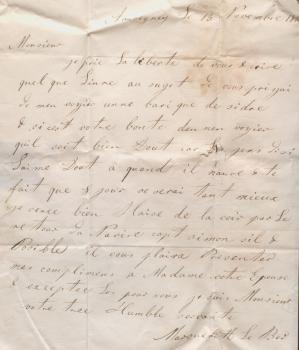 Le 13 Novembre
Monsieur
je prie La liberte de vous écrire
quel que Linne au sujet de vous prijai
de men voyier unne bari que de sidre
& vicent votre bonte deu men voyier
quil soit bien Dout car je
Laime Dout à quand il nauve & te
fait que & pour ce verai tant mieux
je veuce bien Haise de la par Le
re tour du Navire capt simon sil &
Posible il vous plaira Presenter
mes complimens à Madame votre Epouse
& exceptee Les pour vous je suis Monsieur
votre tree Humble servante
Le Bas